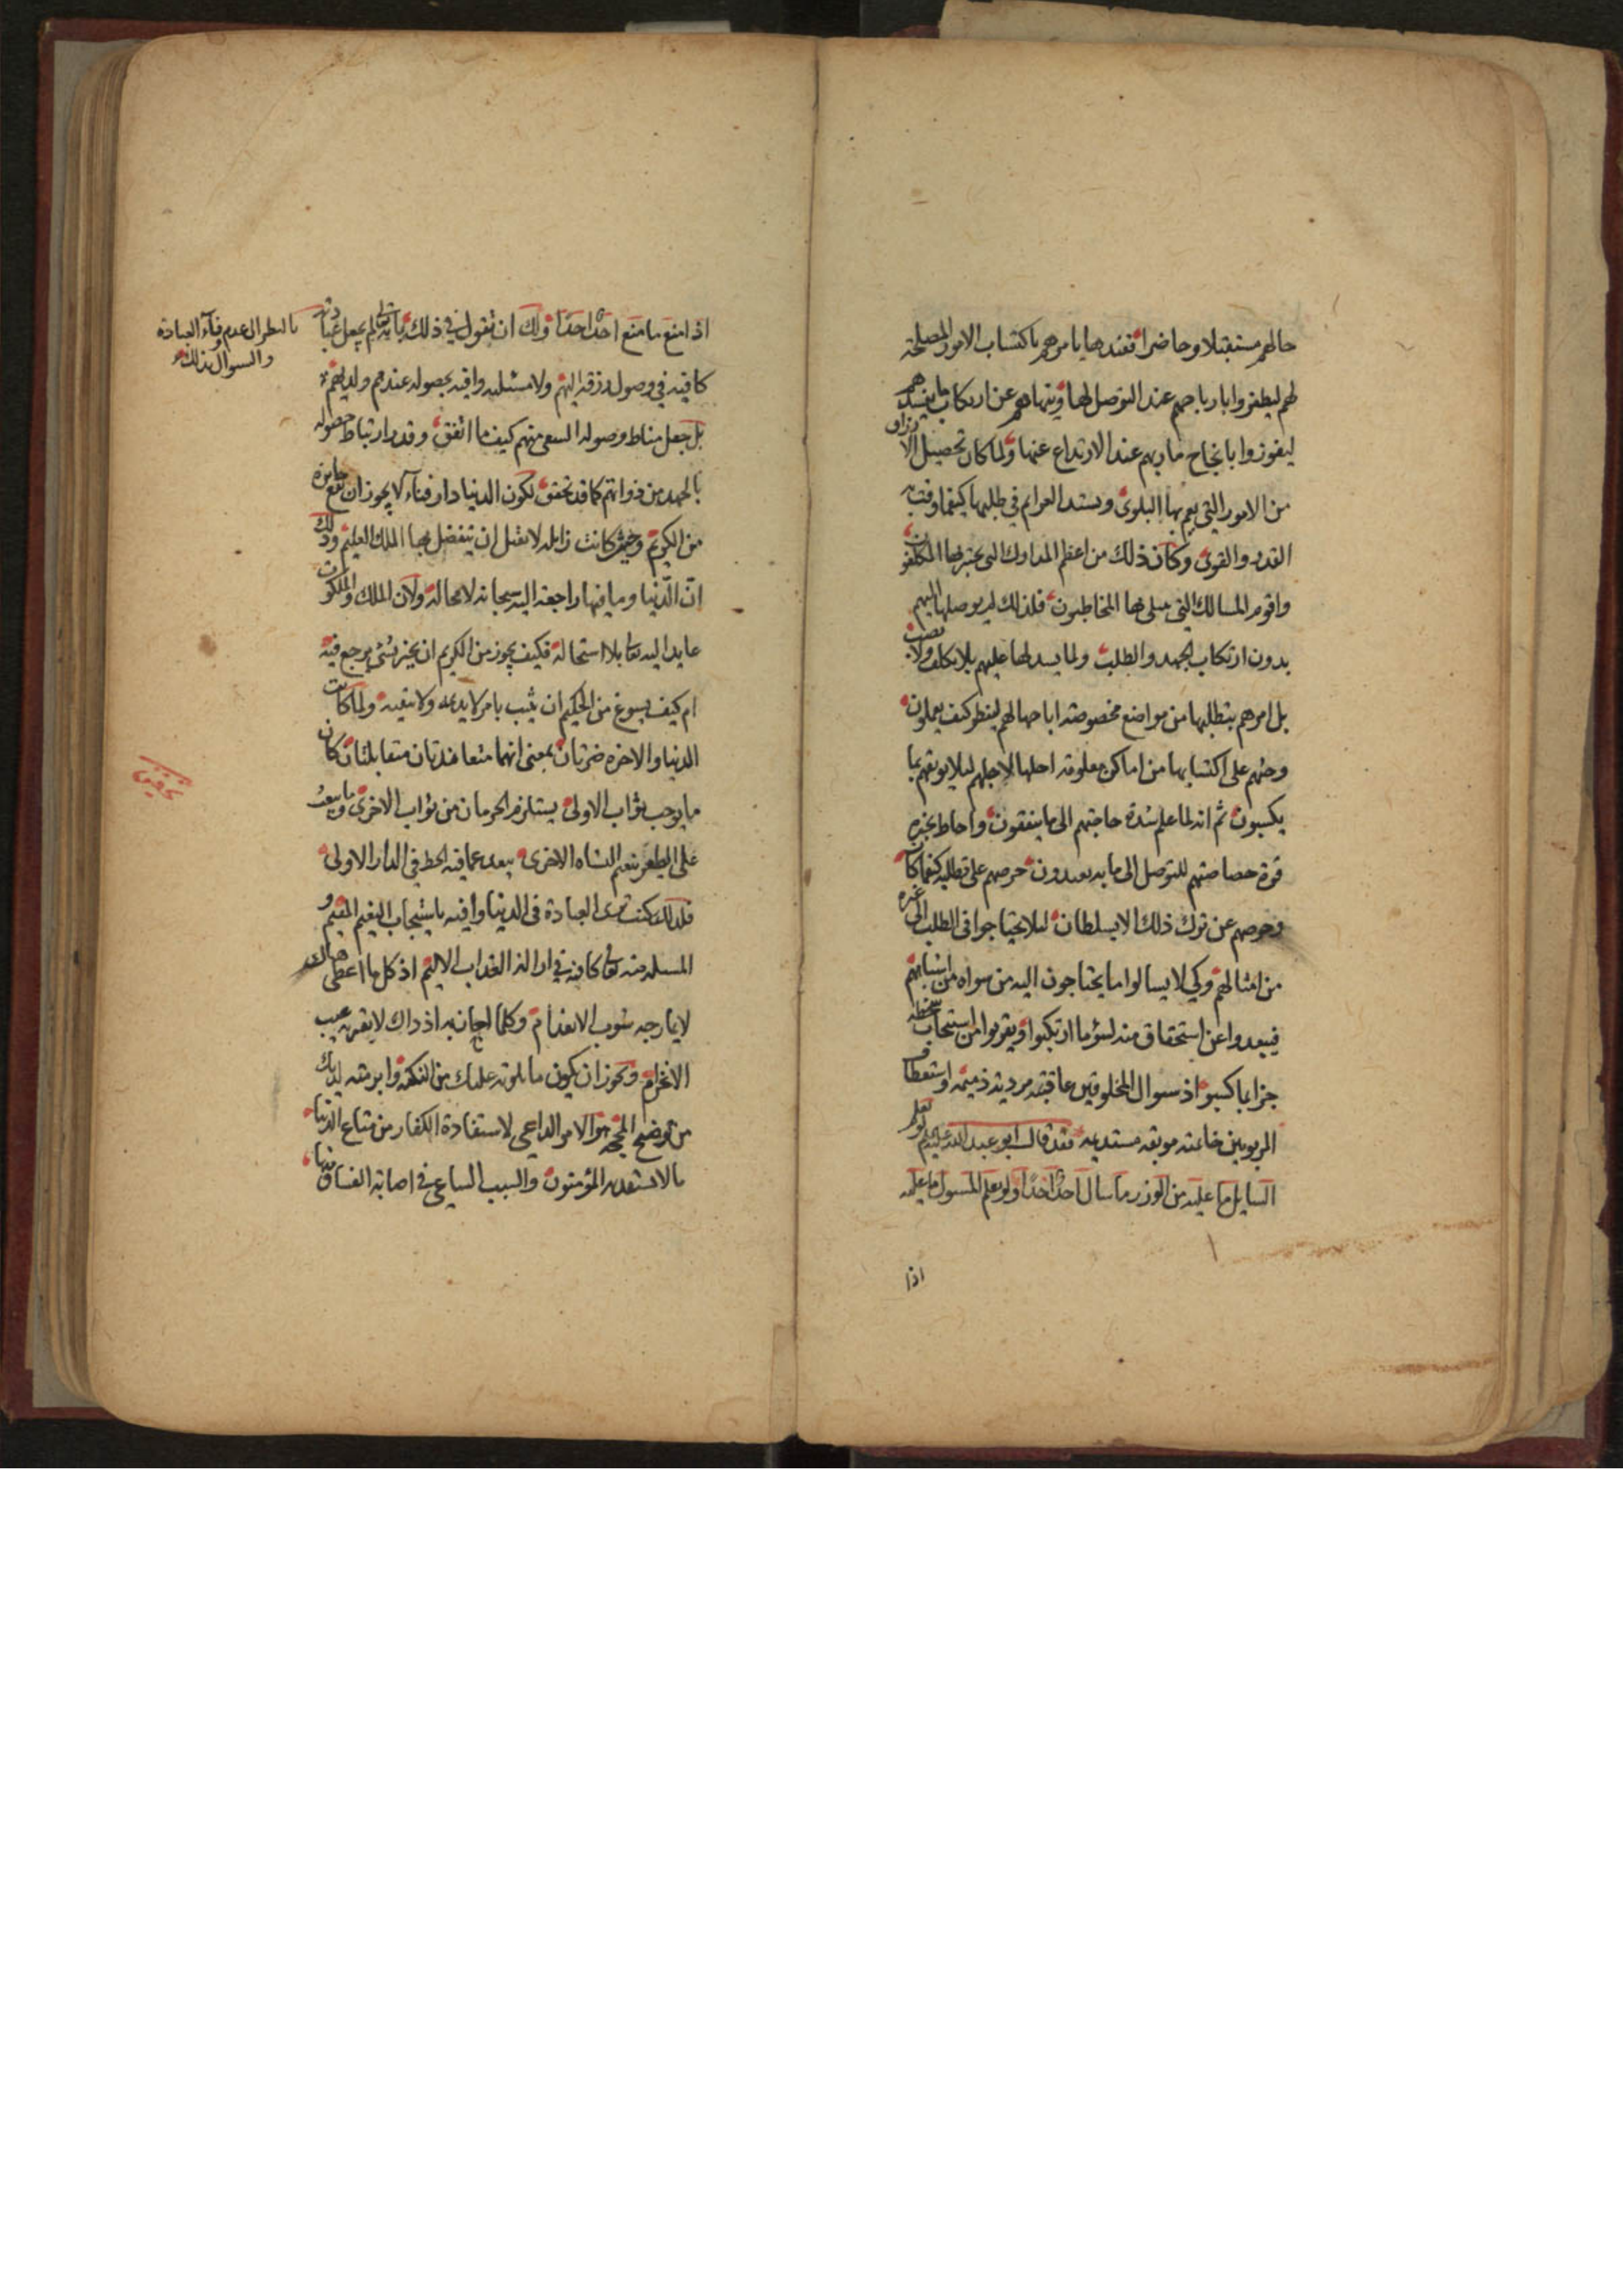 حالهم مستقبلا وحاضرا فعندها يامرهم باكتساب الامور المصلحة
لهم ليظفروا بارباحهم عند التوصل لها وينهاهم عن ارتكاب ما يفسدهم
ليفوزوا بانجاح ماربهم عند الارتداع عنها ولما كان تحصيل الارزاق
من الامور التي يعم بها البلوى ويستد العزايم في طلبها كيفما وفت به
القدر والقوى وكان ذلك من اعظم المدارك التي يختبر بها المكلفون
واقوم المسالك التي يبتلى بها المخاطبون فلذلك لم يوصلها اليهم
بدون ارتكاب الجهد والطلب ولما يسد لها عليهم بلا تكلف ولا نصب
بل امرهم بتطلبها من مواضع مخصوصة اباحها لهم لينظر كيف يعملون
وحثهم على اكتسابها من اماكن معلومة احلها لاجلهم ليلا يوبقهم بما
يكسبون ثم انه لما علم شدة حاجتهم الى ما ينفقون واحاط بخبره
قوة خصاصتهم للتوصل الى ما به يعبدون حرصهم على تطلبه كيفما كان
وحرصهم عن ترك ذلك الا بسلطان ليلا يحتاجوا في الطلب الى غيره
من امثالهم وكي لا يسالوا ما يحتاجون اليه من سواه من اشباههم
فيبعدوا عن استحقاق منه لسؤ ما ارتكبوا ويقربوا من استحباب سخطه
جزا بما كسبوا اذ سوال المخلوقين عاقبته مردية ذميمة واستعطاف
المربوبين خاتمته موبقة مستديمة فقد قال ابو عبد الله عليه السلام لو يعلم
السايل ما عليه من الوزر ما سال احد احدا ولو علم المسول ما عليه
اذا
اذا منع ما منع احد احدا ولك ان تقول في ذلك بانه تعالى لم يجعل عبادته
كافية في وصول رزقه اليهم ولا مسئلته وافية بحصوله عندهم ولديهم
بل جعل مناط وصوله السعى منهم كيف ما اتفق وقدر ارتباط حصوله
بالجهد من ذواتهم كما قد تحقق لكون الدنيا دار فناء لا يجوز ان تقع جايزة
من الكريم وحيث كانت زايلة لا تقبل ان يتفضل بها الملك العليم وذلك
ان الدنيا وما فيها راجعة اليه سبحانه لا محالة ولان الملك والملكوت
عايد اليه تعا بلا استحالة فكيف يجوز من الكريم ان يجيز بشيء يرجع فيه
ام كيف يسوغ من الحكيم ان يثيب بامر لا يديمه ولا يبقيه ولما كانت
الدنيا والاخرة ضرتان بمعنى انهما متعاندتان متقابلتان كان
ما يوجب ثواب الاولى يستلزم الحرمان من ثواب الاخرى وما يبعث
على الظفر بنعيم النشاه الاخرى يبعد عما فيه الحظ في الدار الاولى
فلذلك كنت ترى العبادة في الدنيا وافية باستيجاب النعيم المقيم و
المسئلة منه تعا كافية في ازالة العذاب الاليم اذ كل ما اعطى هنالك
لا يمازجه شوب الانعدام وكلما اجاب به اذ ذاك لا يقربه عيب
الانخرام ويجوز ان يكون ما تلوته عليك من النكتة وابرمته لديك
من توضيح الحجة هو الامر الداعي لاستفادة الكفار من متاع الدنيا
ما لا يستفيده المؤمنون والسبب الساعي في اصابة الفساق منها
بالنظر الى عدم وفاء العبادة
والسوال بذلك
تحقيق